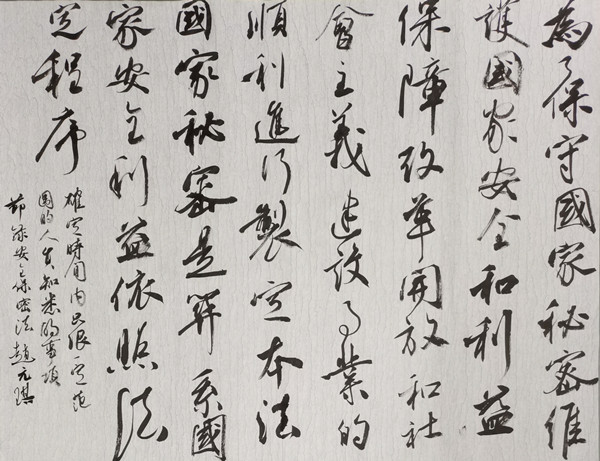 為了保守國家秘密維
護國家安全和利益
保障改革開放和社
會主義建設事業的
順利進行製定本法
國家秘密是關系國
家安全利益依照法
定程序
確定時間內只限一定范
圍的人員知悉的事項
節錄安全保密法趙元琪